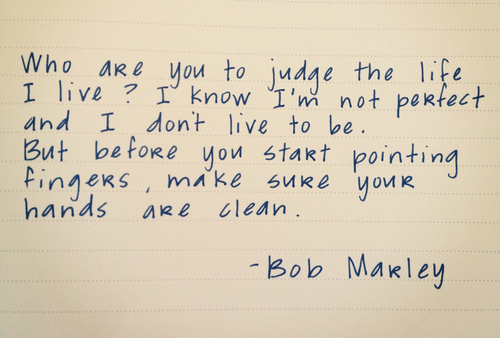 Who are you to judge the life
I live? I know I'm not perfect
and I don't live to be.
But before you start pointing
fingers, make sure your
hands are clean.
-Bob Marley